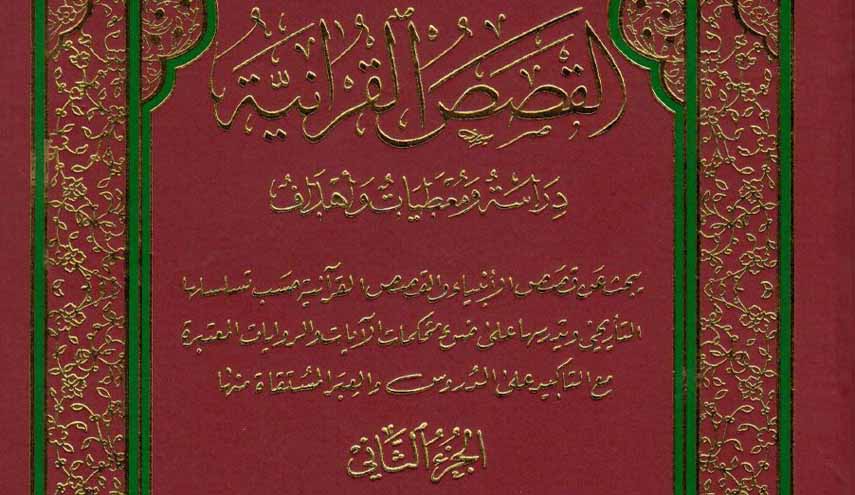 القصص القرانية
دراسة ومعطيات وأهداف
يبحث عن قصص الأنبياء والقصص القرآنية حسب تسلسلها
التأريخي ويدرسها على ضوء محكمات الآيات والروايات المعتبرة
مع التاكيد على الدروس والعبر المستقاة منها
الجزء الثاني